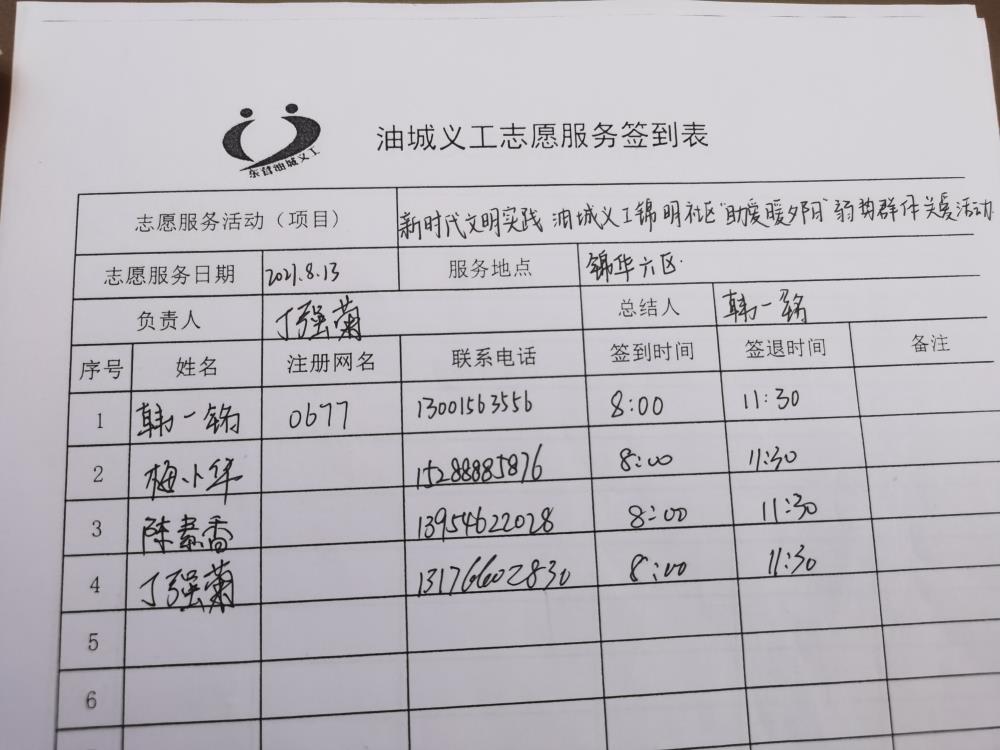 东营油城义工
油城义工志愿服务签到表
志愿服务活动（项目） 新时代文明实践 油城义工锦明社区“助爱暖夕阳”弱势群体关爱活动
志愿服务日期 2021.8.13 服务地点 锦华六区.
负责人 丁强菊 总结人 韩一铭
序号 姓名 注册网名 联系电话 签到时间 签退时间 备注
1 韩一铭 0677 13001563556 8:00 11:30
2 梅小华 15288885876 8:00 11:30
3 陈素香 13954622028 8:00 11:30
4 丁强菊 13176602830 8:00 11:30
5
6